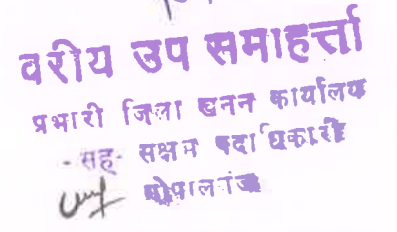 वरीय उप समाहर्त्ता
प्रभारी जिला खनन कार्यालय
- सह- सक्षम पदाधिकारी
गोपालगंज